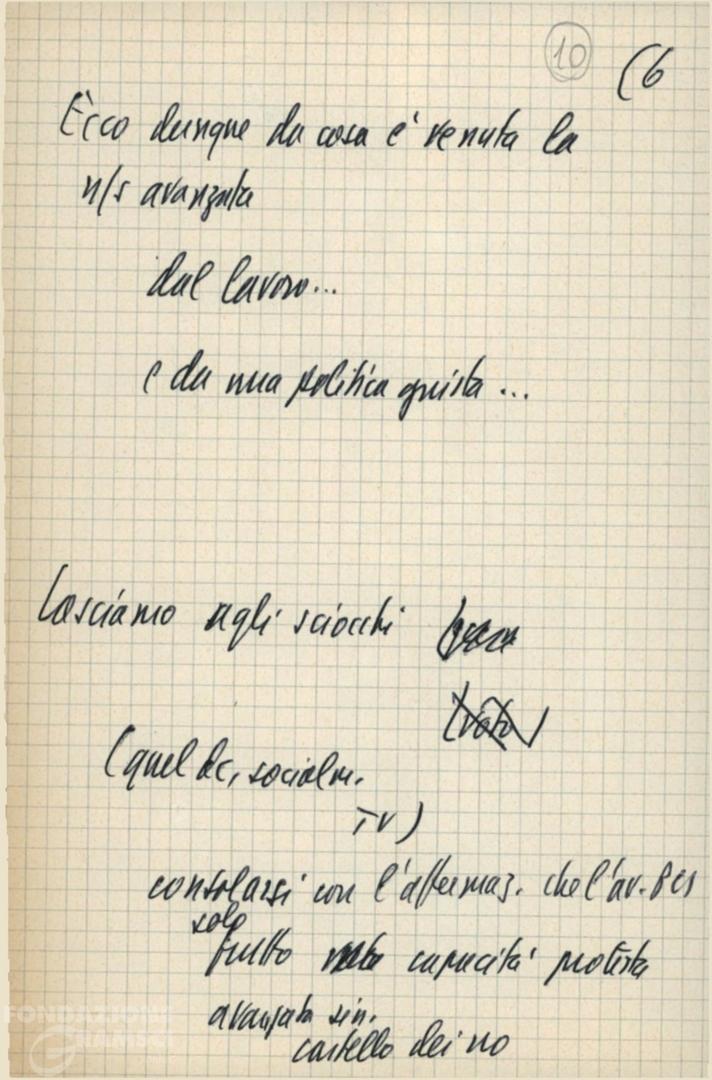 10 (6
Ecco dunque da cosa è venuta la
n/s avanzata
dal lavoro...
e da una politica giusta...
Lasciamo agli sciocchi
(voto)
(quel dc, socialm.
TV)
consolarsi con l'affermaz. che l'av. PCI
solo
frutto capacità protesta
avanzata sin.
castello dei no
FONDAZIONE